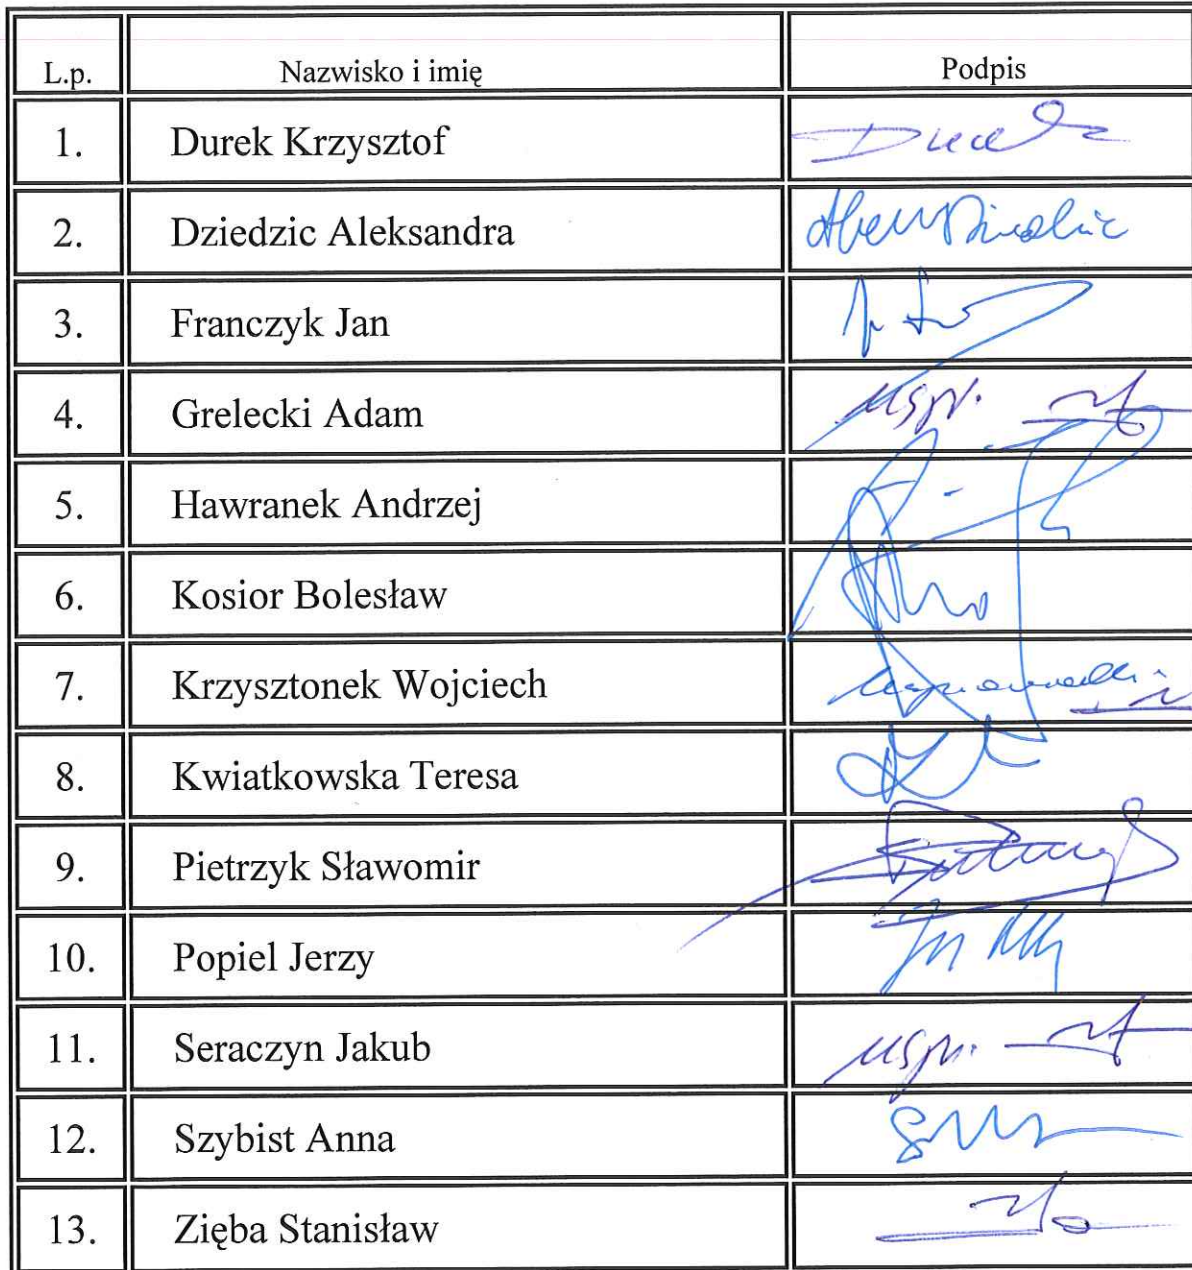 L.p. Nazwisko i imię Podpis
1. Durek Krzysztof
2. Dziedzic Aleksandra
3. Franczyk Jan
4. Grelecki Adam uspr.
5. Hawranek Andrzej
6. Kosior Bolesław
7. Krzysztonek Wojciech
8. Kwiatkowska Teresa
9. Pietrzyk Sławomir
10. Popiel Jerzy
11. Seraczyn Jakub uspr.
12. Szybist Anna
13. Zięba Stanisław